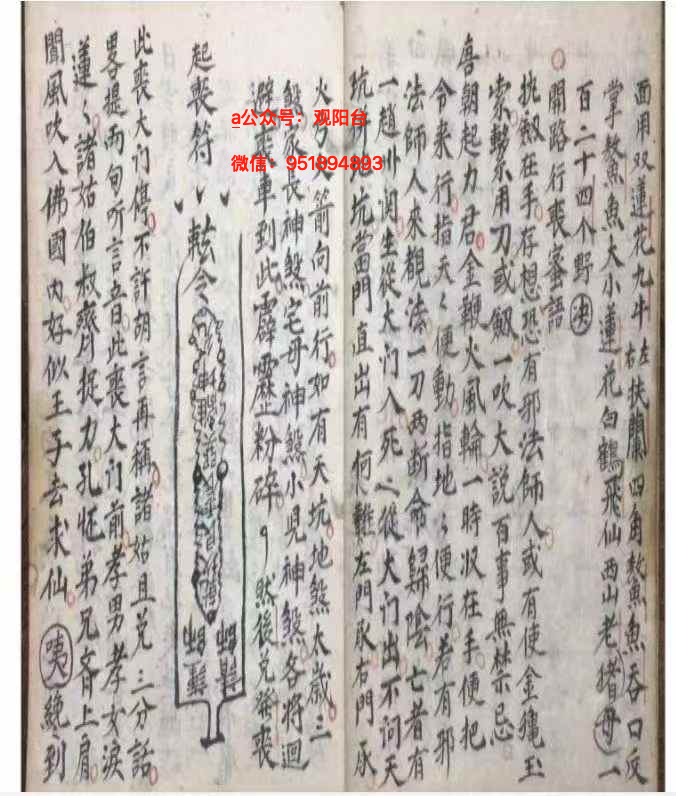 面用双蓮花九斗左右扶蘭四角鰲魚吞口反
掌鰲魚魚大小蓮花白鶴飛仙西山老母一
百二十四个野决
開路行喪寄語
挑劔在手存想恐有邪法師人或有使金䨇玉
索勅奈用刀或劔一吹大説百事無禁忌
唐朝起力君金鞭火風輪一時収在手便把
令来行指天〻便動指地〻便行若有邪
法師人來觀法一刀两断命歸陰亡者有
一趙卦関生從大门入死〻從大门出不问天
坑併地坑當門直出有何難左門敢右門承
火分人箭向前行如有天坑地煞太歲三
煞家長神煞宅母神煞小児神煞各将迴
避喪車到此霹靂粉碎然後兄發喪
起喪符
勅令
此喪大门停不許胡言再稱諸姑且兑三分話
畧提両句听言音此喪大门前孝男孝女淚
蓮〻諸姑伯叔齊捉力孔怀弟兄齊上肩
聞風吹入佛國内好似王子去求仙咦繞到
a公众号：观阳台
微信：951894893